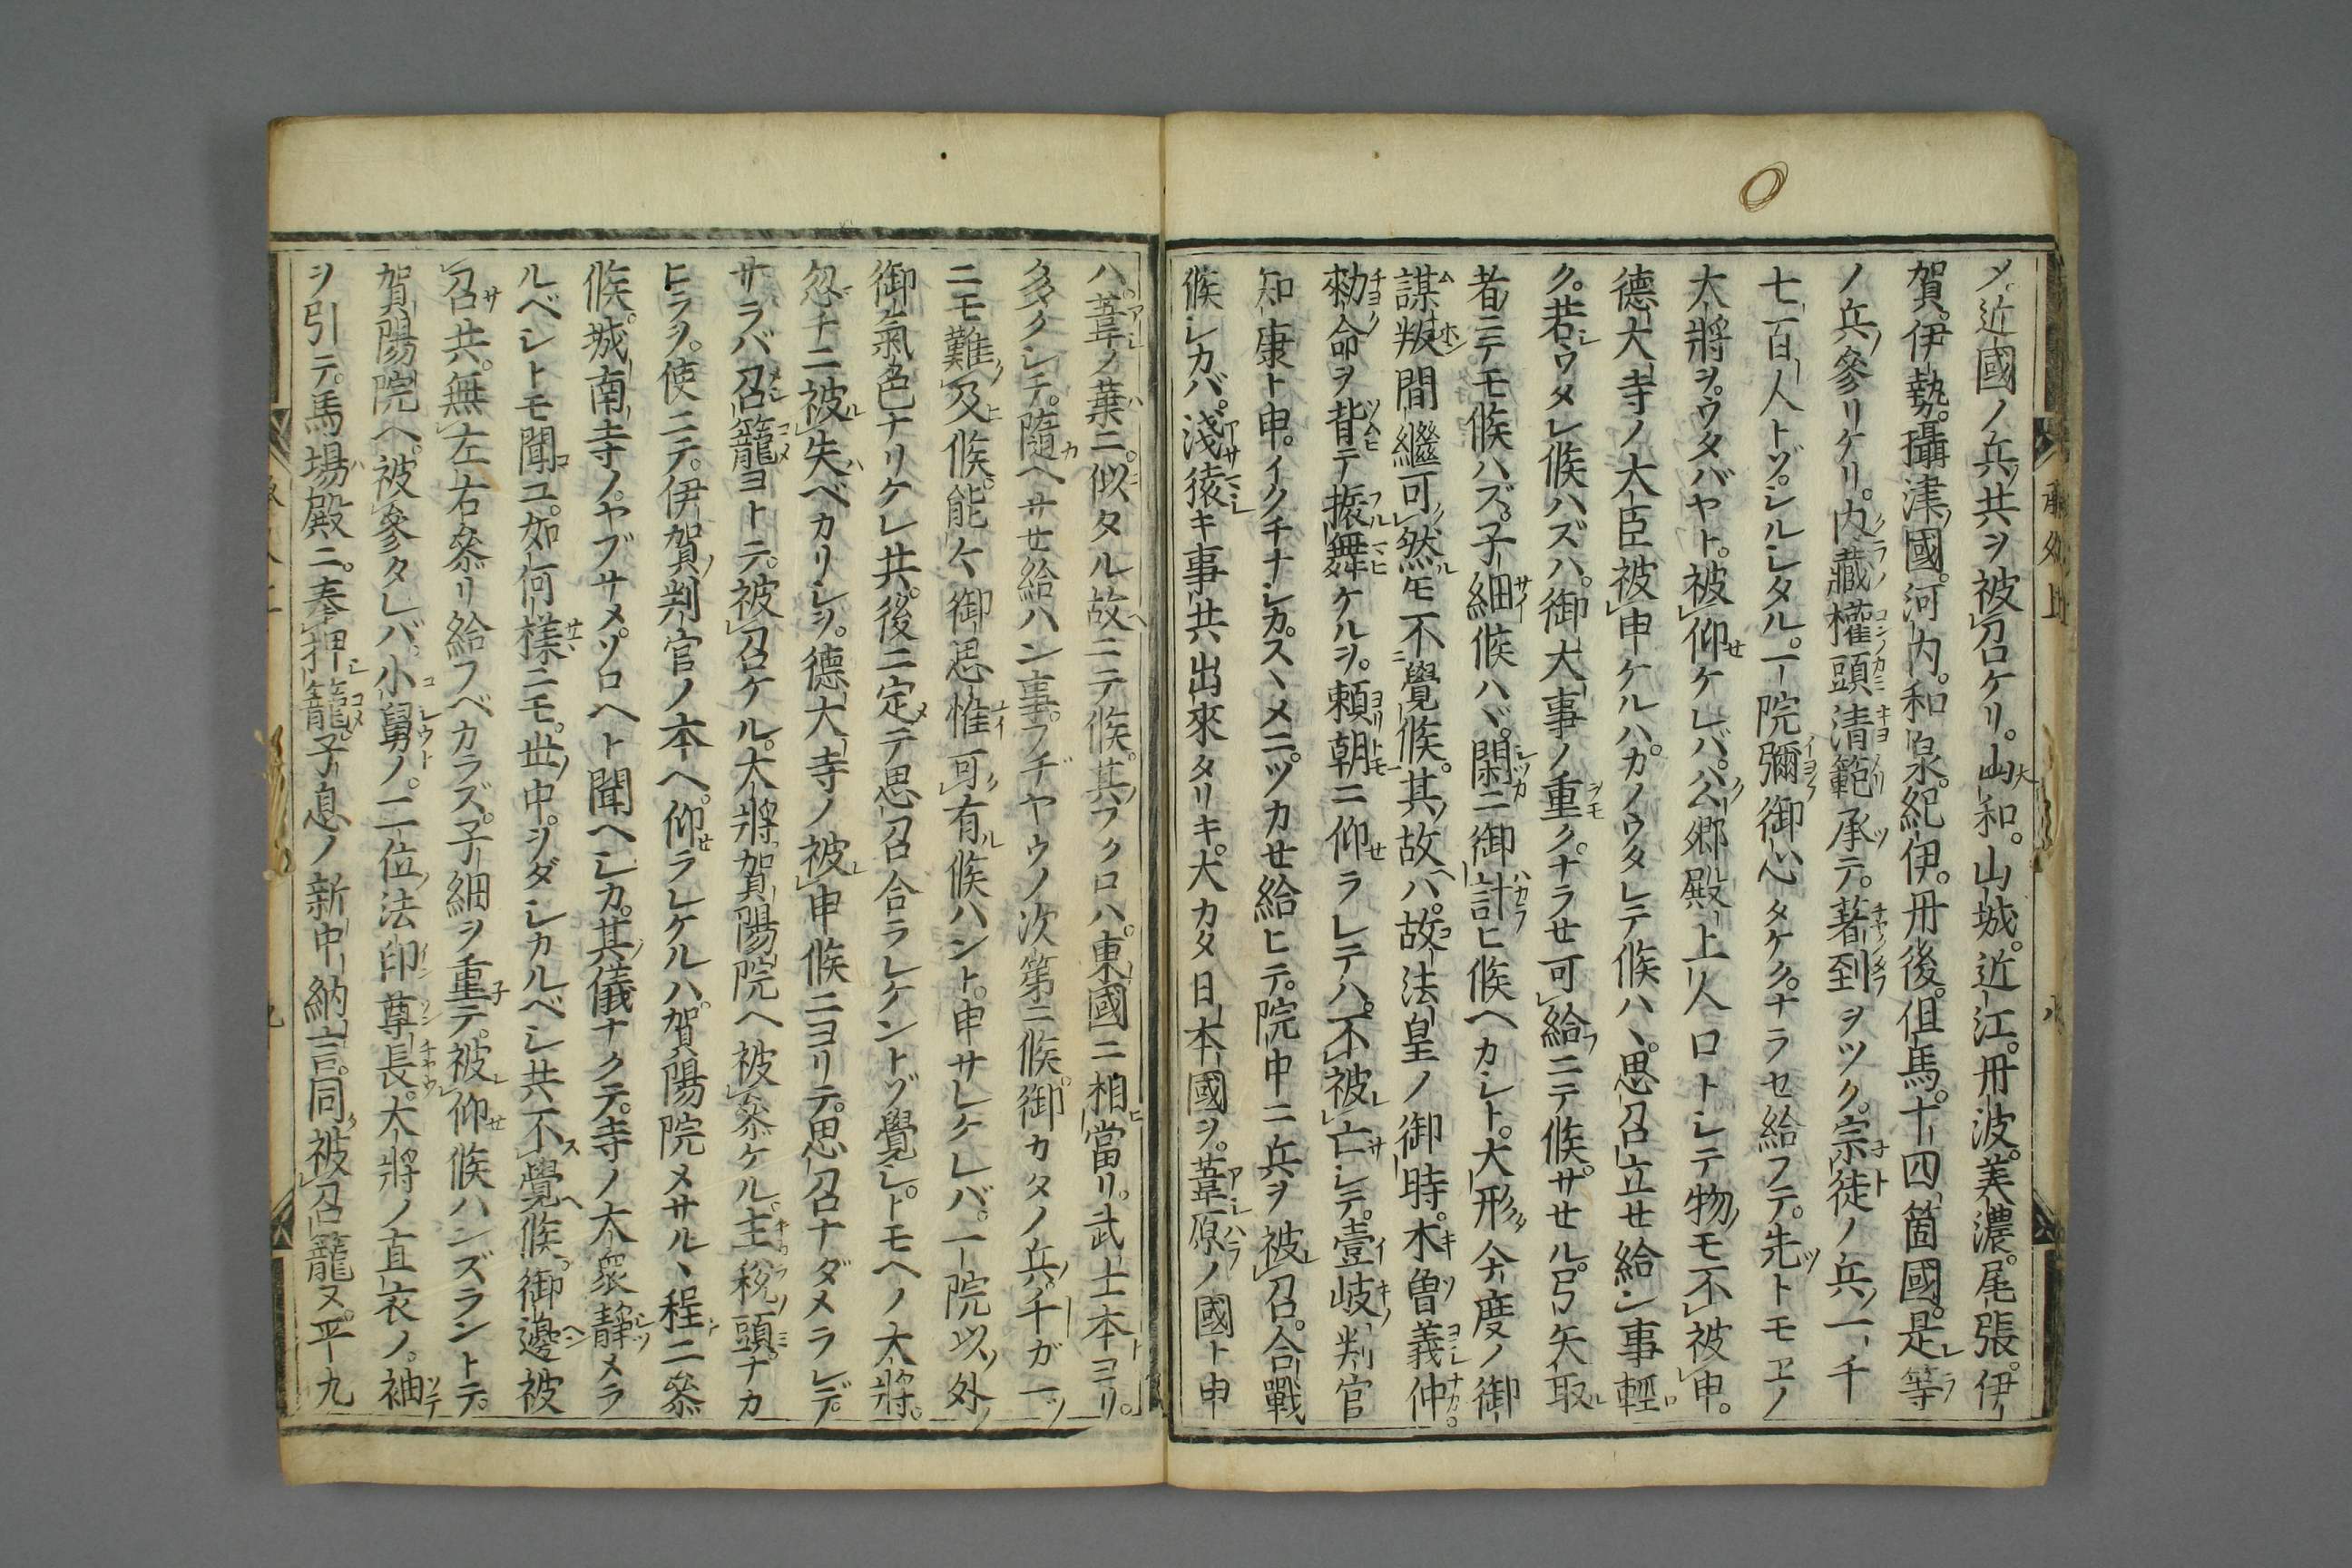 メ。近國ノ兵共ヲ被召ケリ。大和。山城。近江。丹波。美濃。尾張。伊
賀。伊勢。攝津國。河内。和泉。紀伊。丹後。但馬。十四箇國。是等
ノ兵參リケリ。内藏權頭清範承テ。著到ヲツク。宗徒ノ兵一千
七百人トゾ。シルシタル。一院彌御心タケク。ナラセ給フテ。先トモヱノ
大將ヲ。ウタバヤト。被仰ケレバ。公郷殿上人口トシテ物モ不被申。
德大寺ノ大臣被申ケルハ。カノウタレテ候ハヽ。思召立せ給ン事輕
ク。若ウタレ候ハズハ。御大事ノ重ク。ナラせ可給ニテ候。サせル弓矢取
者ニテモ候ハズ。子細候ハヾ。閑ニ御計ヒ候ヘカシト。大形今度ノ御
謀叛間繼可然モ不覺候。其故ハ。故法皇ノ御時。木曽義仲。
勅命ヲ背テ振舞ケルヲ。頼朝ニ仰せラレテハ。不被亡シテ。壹岐判官
知康ト申。イクチナシカスヽメニ。ツカせ給ヒテ。院中ニ兵ヲ被召。合戰
候シカバ。淺猿キ事共出來タリキ。大カタ日本國ヲ。葦原ノ國ト申
ハ。葦ノ葉ニ。似タル故ニテ候。其フクロハ。東國ニ相當リ。武士本ヨリ。
多クシテ。隨ヘサせ給ハン事。フヂヤウノ次第ニ候。御カタノ兵。千ガ一ツ
ニモ難及候。能々御思惟可有候ハント。申サレケレバ。一院以外ノ
御氣色ナリケレ共。後ニ定テ思召合ラレケントゾ覺シ。トモヘノ大將。
忽チニ被失ベカリシヲ。德大寺ノ被申候ニヨリテ。思召ナダメラレデ
サラバ召籠ヨトテ。被召ケル。大將賀陽院ヘ被參ケル。主税頭ナカ
ヒラヲ。使ニテ。伊賀判官ノ本ヘ。仰せラレケルハ。賀陽院メサルヽ程ニ參
候。城南寺ノヤブサメ。ソロヘト聞ヘシカ。其儀ナクテ。寺ノ大衆靜メラ
ルベシトモ聞コユ。如何樣ニモ。世中。ヲダシカルベシ共不覺候。御邊被
召共。無左右參リ給フベカラズ。子細ヲ重テ。被仰せ候ハンズラントテ。
賀陽院ヘ。被參タレバ。小舅ノ。二位法印尊長。大將ノ直衣ノ。袖
ヲ引テ。馬場殿ニ。奉押籠。子息ノ新中納言。同被召籠ヌ。平九